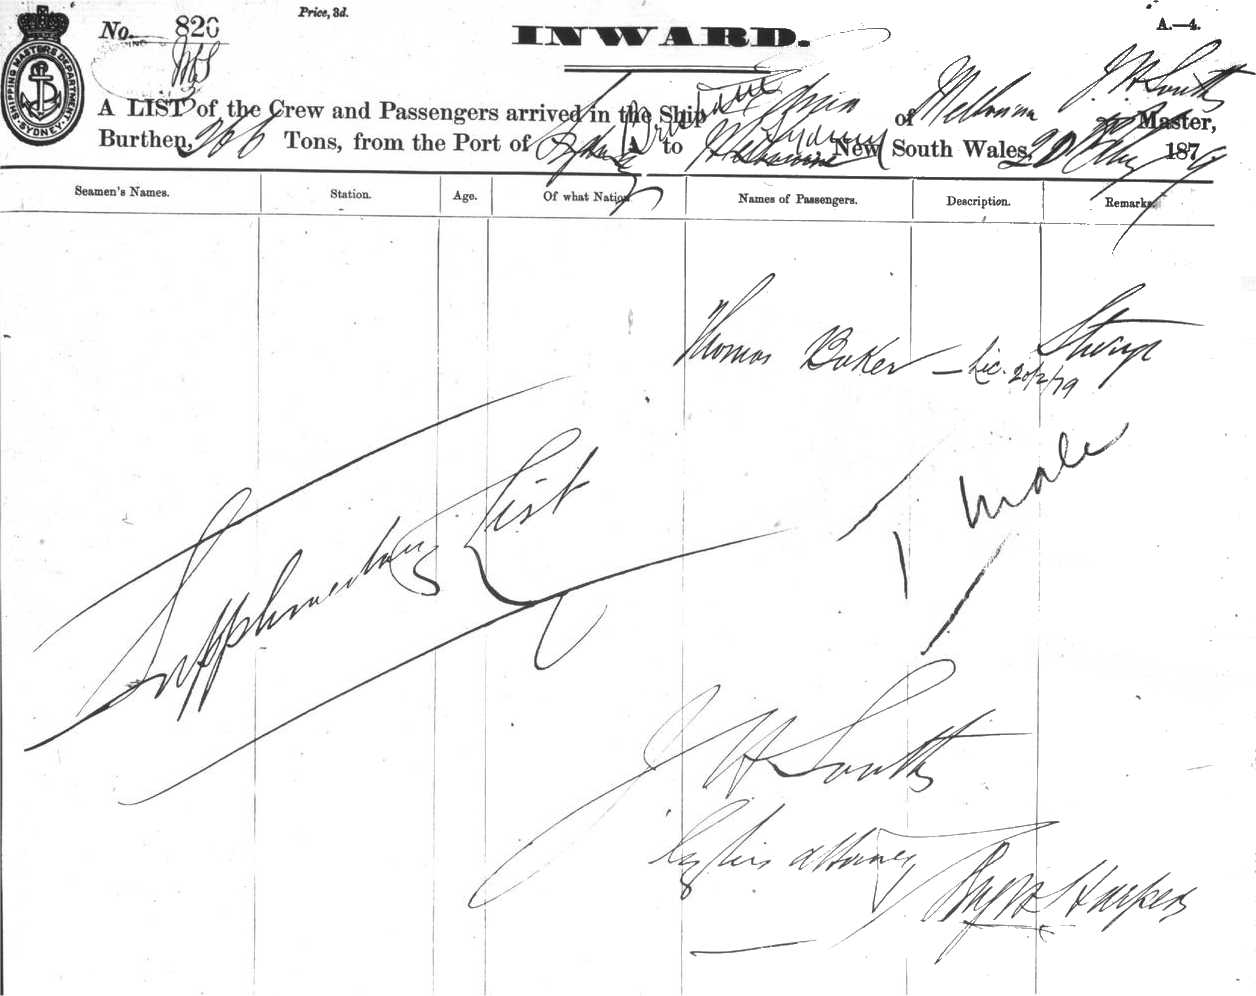 No. 820
Price, 3d.
INWARD.
A.—4.
SHIPPING MASTERS DEPARTMENT SYDNEY
A LIST of the Crew and Passengers arrived in the Ship of Melbourne J H South Master,
Burthen, 266 Tons, from the Port of Brisbane to Sydney New South Wales, 20 187 9
Seamen's Names. Station. Age. Of what Nation Names of Passengers. Description. Remarks.
Thomas Baker — Lic. 20/2/79
Supplementary List
1 Male
J H South
by his attorney
Harper